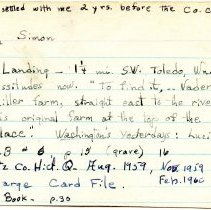 settled with me 2 yrs. before the Co. c
Simon
Landing - 1½ mi. S.W. Toledo, W
issitudes now. "To find it, .. Vader
iller farm, straight east to the rive
is original farm at the top of the
lace." Washington's Yesterdays: Luci
B # 6 p. 15 (grave) 16
tz Co. Hist. Q. Aug. 1959, Nov. 1959
Feb. 1960
arge Card File.
Book - p. 30